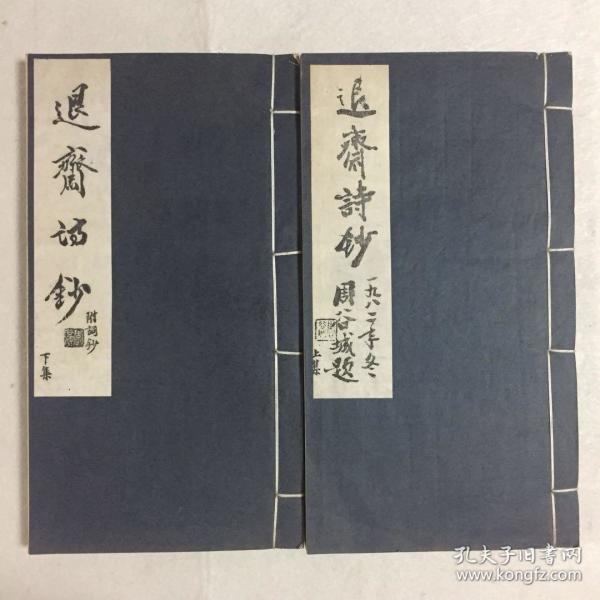 退齋詩鈔
附詞鈔
下集
退齋詩鈔
一九八二年冬
周谷城題
上集
孔夫子旧书网
www.kongfz.com